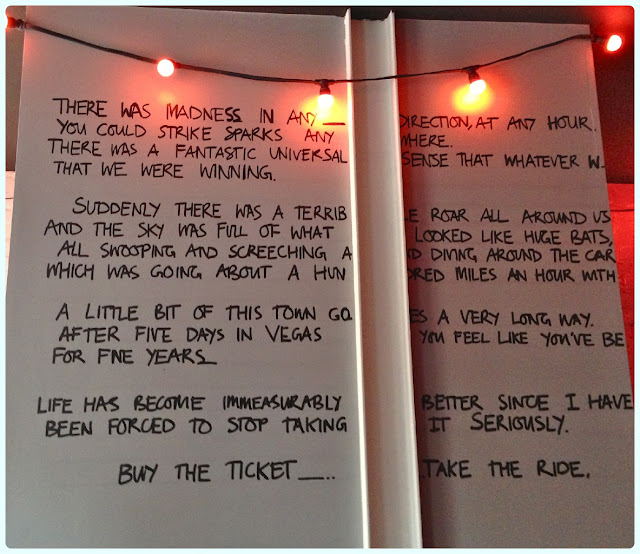 THERE WAS MADNESS IN ANY __ DIRECTION, AT ANY HOUR.
YOU COULD STRIKE SPARKS ANY WHERE.
THERE WAS A FANTASTIC UNIVERSAL SENSE THAT WHATEVER W_
THAT WE WERE WINNING.
SUDDENLY THERE WAS A TERRIB LE ROAR ALL AROUND US
AND THE SKY WAS FULL OF WHAT LOOKED LIKE HUGE BATS,
ALL SWOOPING AND SCREECHING AND DIVING AROUND THE CAR
WHICH WAS GOING ABOUT A HUN DRED MILES AN HOUR WITH
A LITTLE BIT OF THIS TOWN GO ES A VERY LONG WAY.
AFTER FIVE DAYS IN VEGAS YOU FEEL LIKE YOU'VE BE
FOR FIVE YEARS_
LIFE HAS BECOME IMMEASURABLY BETTER SINCE I HAVE
BEEN FORCED TO STOP TAKING IT SERIOUSLY.
BUY THE TICKET __.. .TAKE THE RIDE.